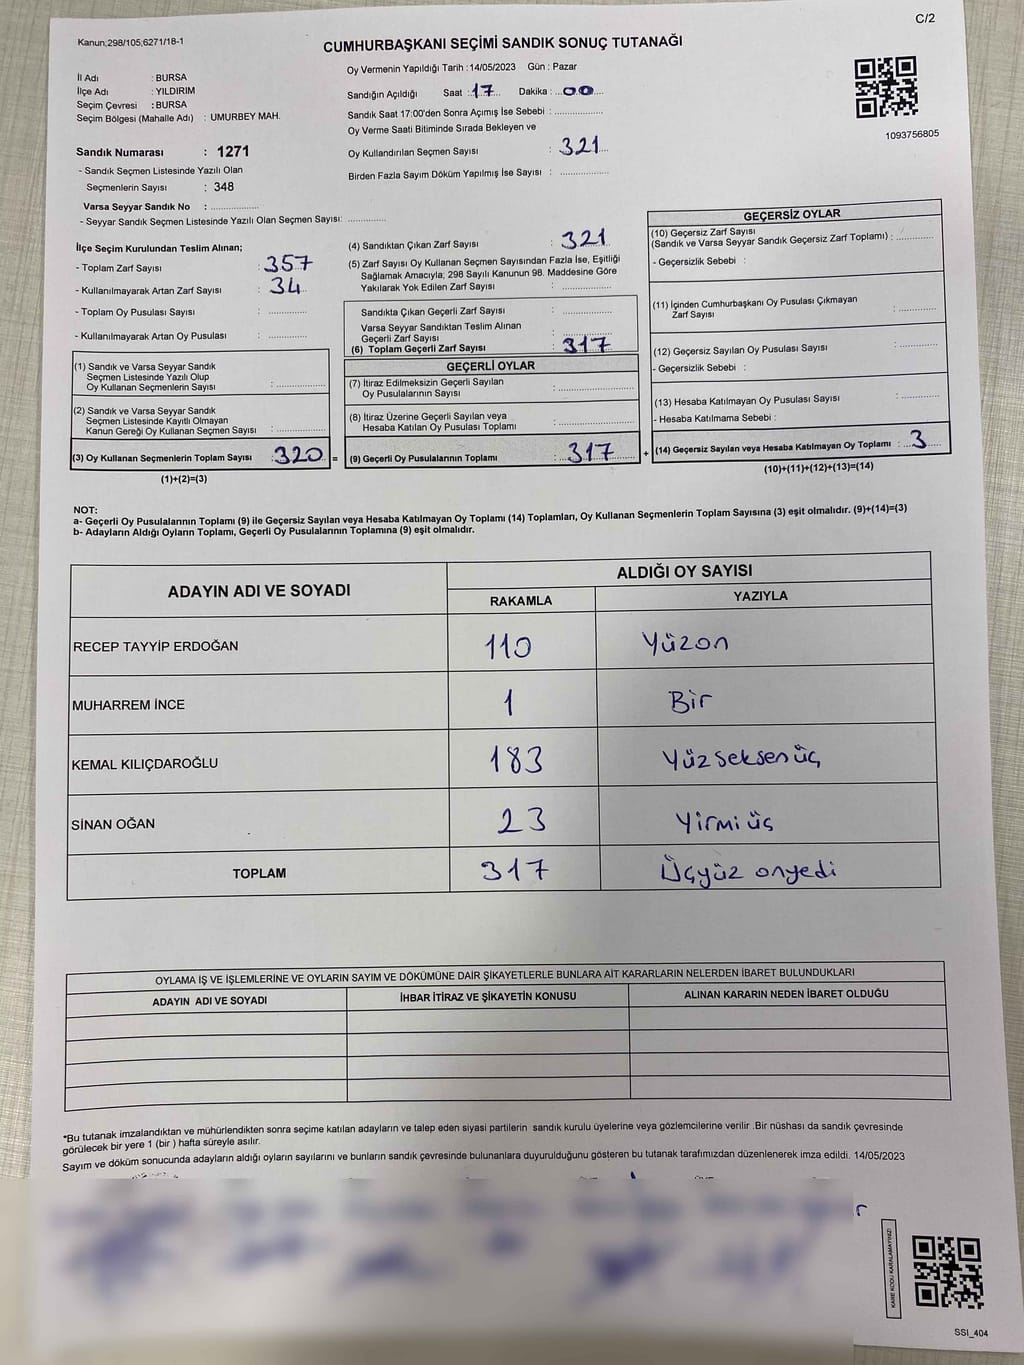 C/2
Kanun;298/105,6271/18-1
CUMHURBAŞKANI SEÇİMİ SANDIK SONUÇ TUTANAĞI
İl Adı : BURSA
İlçe Adı : YILDIRIM
Seçim Çevresi : BURSA
Seçim Bölgesi (Mahalle Adı) : UMURBEY MAH.
Sandık Numarası : 1271
- Sandık Seçmen Listesinde Yazılı Olan
Seçmenlerin Sayısı : 348
Varsa Seyyar Sandık No : ..................
- Seyyar Sandık Seçmen Listesinde Yazılı Olan Seçmen Sayısı: ..............
Oy Vermenin Yapıldığı Tarih : 14/05/2023 Gün : Pazar
Sandığın Açıldığı Saat : 17 Dakika : 00
Sandık Saat 17:00'den Sonra Açımış İse Sebebi : ..................
Oy Verme Saati Bitiminde Sırada Bekleyen ve
Oy Kullandırılan Seçmen Sayısı : 321
Birden Fazla Sayım Döküm Yapılmış İse Sayısı : ..................
1093756805
İlçe Seçim Kurulundan Teslim Alınan;
- Toplam Zarf Sayısı : 357
- Kullanılmayarak Artan Zarf Sayısı : 34
- Toplam Oy Pusulası Sayısı : ..............
- Kullanılmayarak Artan Oy Pusulası : ..............
(1) Sandık ve Varsa Seyyar Sandık
Seçmen Listesinde Yazılı Olup
Oy Kullanan Seçmenlerin Sayısı : ..................
(2) Sandık ve Varsa Seyyar Sandık
Seçmen Listesinde Kayıtlı Olmayan
Kanun Gereği Oy Kullanan Seçmen Sayısı : ..................
(3) Oy Kullanan Seçmenlerin Toplam Sayısı : 320 =
(1)+(2)=(3)
(4) Sandıktan Çıkan Zarf Sayısı : 321
(5) Zarf Sayısı Oy Kullanan Seçmen Sayısından Fazla İse, Eşitliği
Sağlamak Amacıyla; 298 Sayılı Kanunun 98. Maddesine Göre
Yakılarak Yok Edilen Zarf Sayısı : ..................
Sandıkta Çıkan Geçerli Zarf Sayısı : ..................
Varsa Seyyar Sandıktan Teslim Alınan
Geçerli Zarf Sayısı : ..................
(6) Toplam Geçerli Zarf Sayısı : 317
GEÇERLİ OYLAR
(7) İtiraz Edilmeksizin Geçerli Sayılan
Oy Pusulasının Sayısı : ..................
(8) İtiraz Üzerine Geçerli Sayılan veya
Hesaba Katılan Oy Pusulası Toplamı : ..................
(9) Geçerli Oy Pusulalarının Toplamı : 317 +
GEÇERSİZ OYLAR
(10) Geçersiz Zarf Sayısı
(Sandık ve Varsa Seyyar Sandık Geçersiz Zarf Toplamı) : ..............
- Geçersizlik Sebebi :
(11) İçinden Cumhurbaşkanı Oy Pusulası Çıkmayan
Zarf Sayısı : ..............
(12) Geçersiz Sayılan Oy Pusulası Sayısı : ..............
- Geçersizlik Sebebi :
(13) Hesaba Katılmayan Oy Pusulası Sayısı : ..............
- Hesaba Katılmama Sebebi :
(14) Geçersiz Sayılan veya Hesaba Katılmayan Oy Toplamı : 3
(10)+(11)+(12)+(13)=(14)
NOT:
a- Geçerli Oy Pusulalarının Toplamı (9) ile Geçersiz Sayılan veya Hesaba Katılmayan Oy Toplamı (14) Toplamları, Oy Kullanan Seçmenlerin Toplam Sayısına (3) eşit olmalıdır. (9)+(14)=(3)
b- Adayların Aldığı Oyların Toplamı, Geçerli Oy Pusulalarının Toplamına (9) eşit olmalıdır.
ADAYIN ADI VE SOYADI ALDIĞI OY SAYISI
RAKAMLA YAZIYLA
RECEP TAYYİP ERDOĞAN 110 Yüzon
MUHARREM İNCE 1 Bir
KEMAL KILIÇDAROĞLU 183 Yüzseksenüç
SİNAN OĞAN 23 Yirmi üç
TOPLAM 317 Üçyüz onyedi
OYLAMA İŞ VE İŞLEMLERİNE VE OYLARIN SAYIM VE DÖKÜMÜNE DAİR ŞİKAYETLERLE BUNLARA AİT KARARLARIN NELERDEN İBARET BULUNDUKLARI
ADAYIN ADI VE SOYADI İHBAR İTİRAZ VE ŞİKAYETİN KONUSU ALINAN KARARIN NEDEN İBARET OLDUĞU
*Bu tutanak imzalandıktan ve mühürlendikten sonra seçime katılan adayların ve talep eden siyasi partilerin sandık kurulu üyelerine veya gözlemcilerine verilir .Bir nüshası da sandık çevresinde
görülecek bir yere 1 (bir ) hafta süreyle asılır.
Sayım ve döküm sonucunda adayların aldığı oyların sayılarını ve bunların sandık çevresinde bulunanlara duyurulduğunu gösteren bu tutanak tarafımızdan düzenlenerek imza edildi. 14/05/2023
KARE KODU KARALAMAYINIZ!
SSI_404